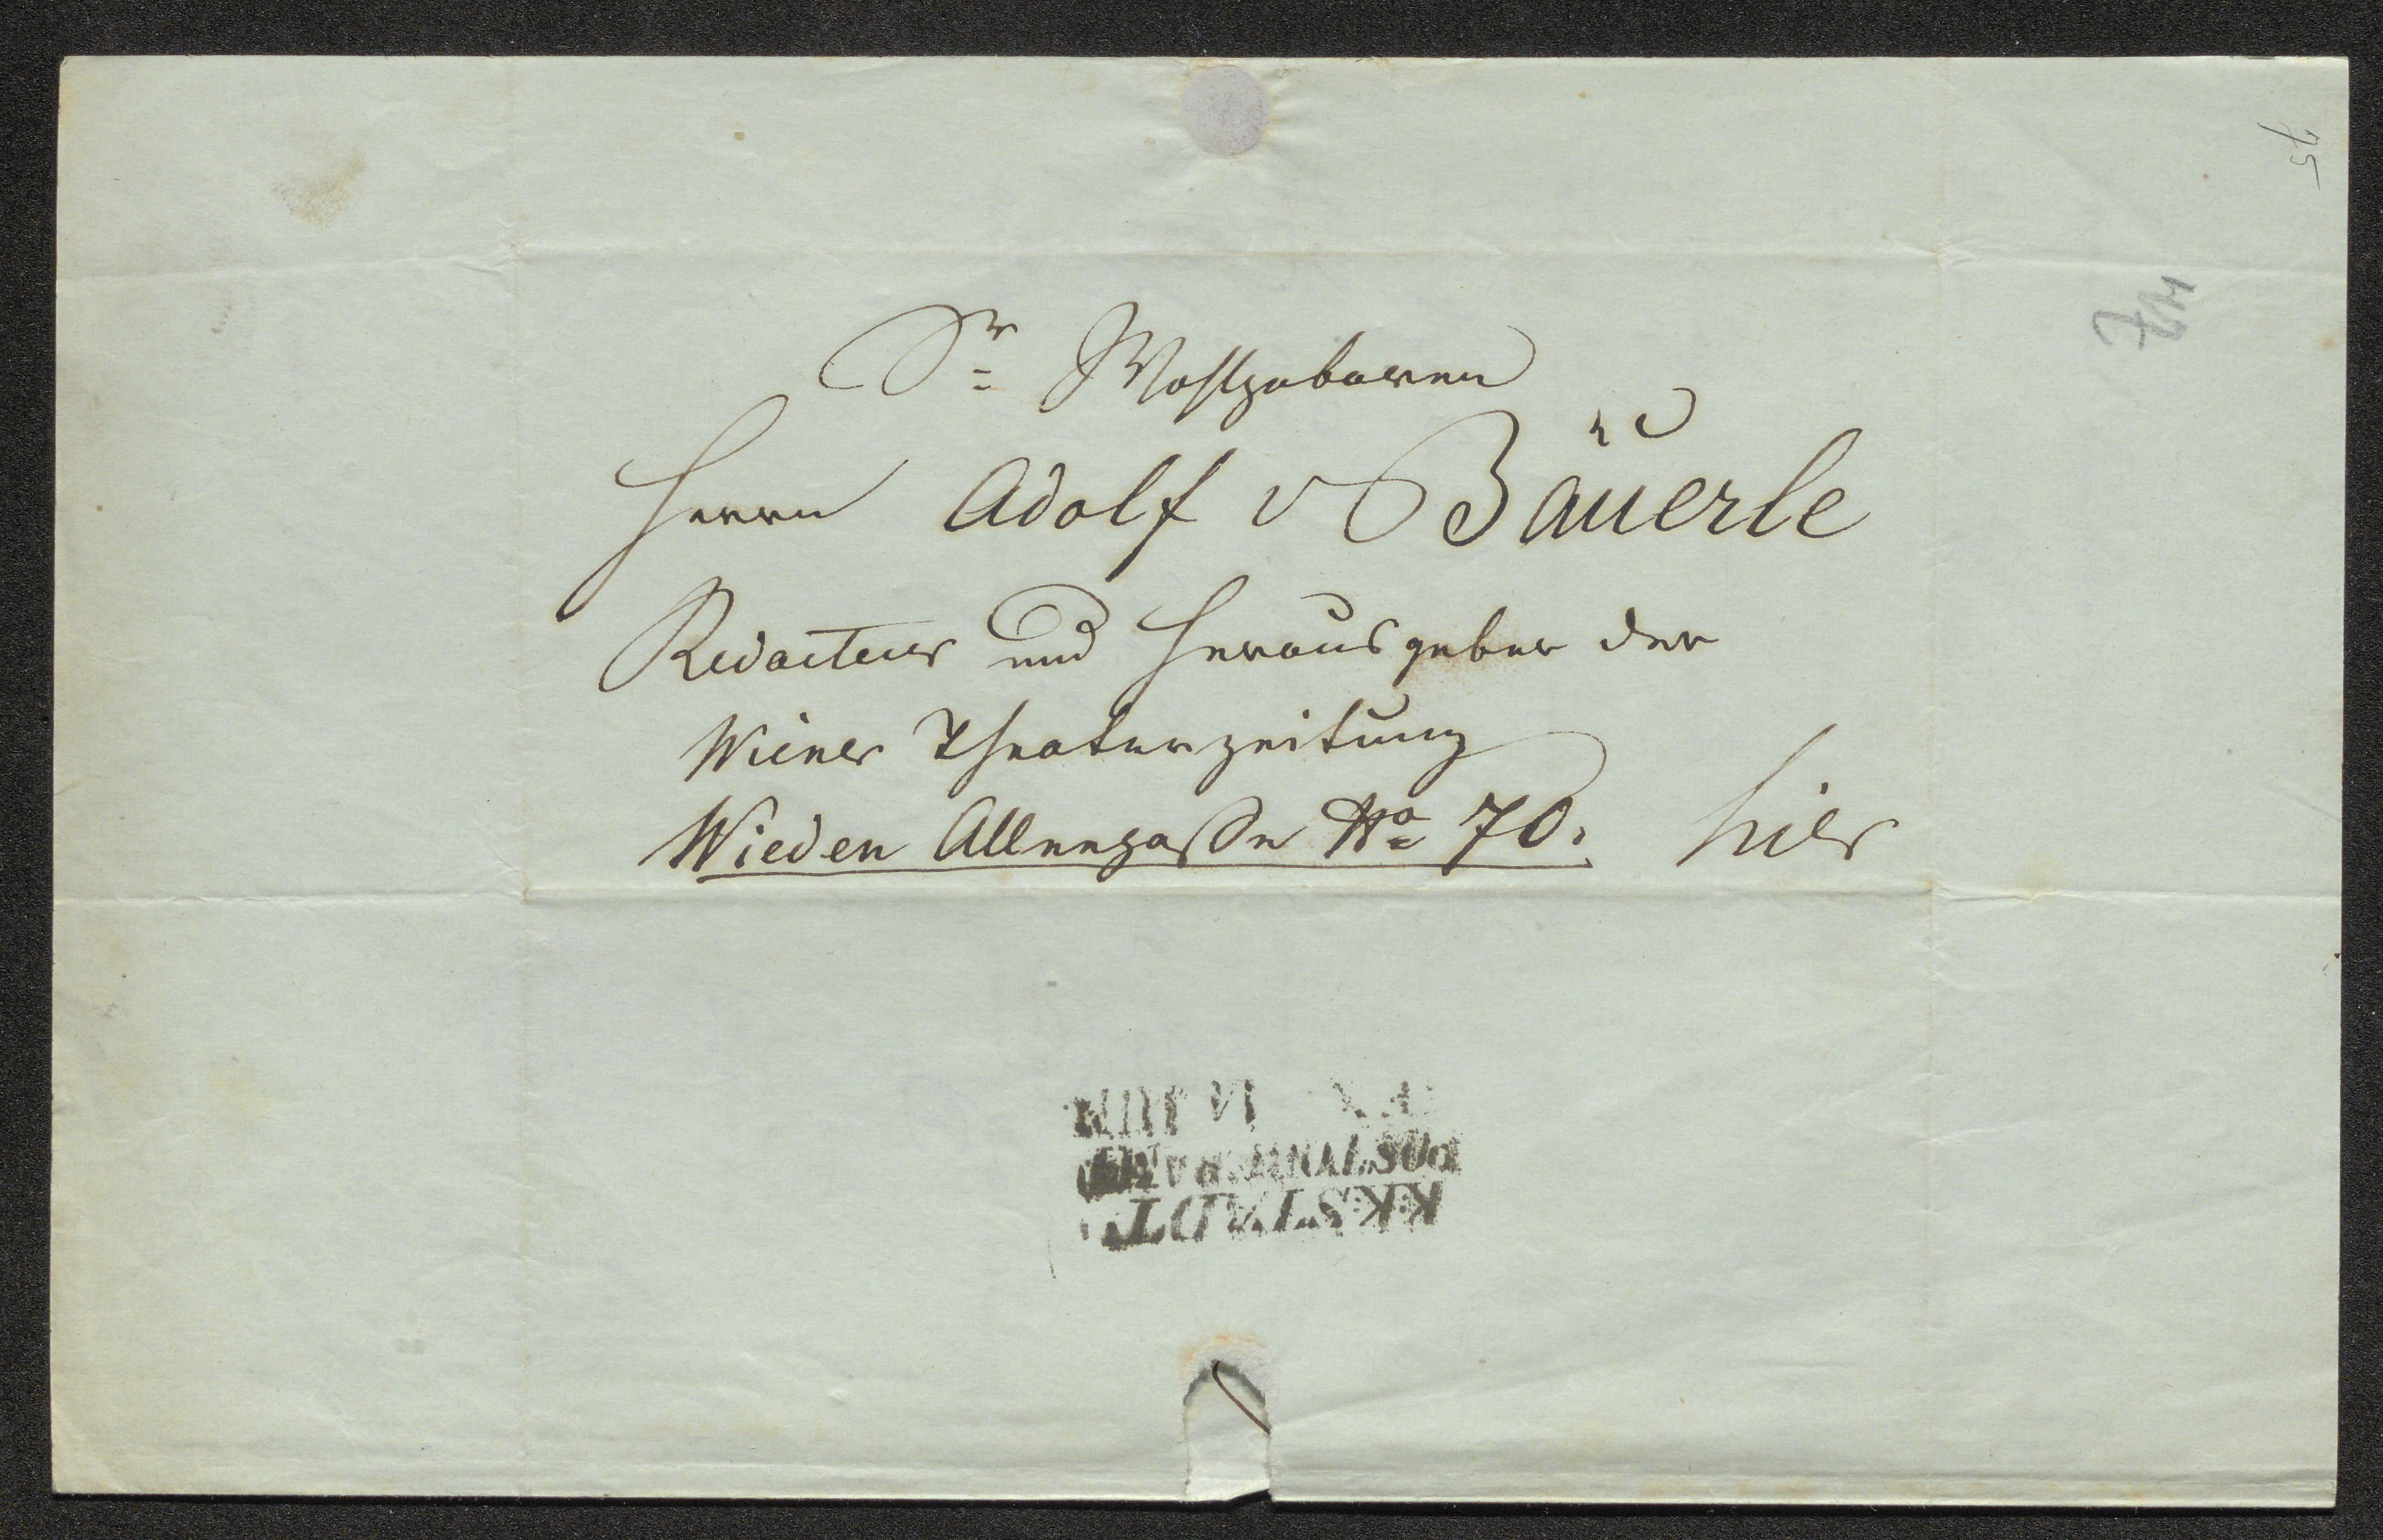 Sr Wohlgeboren
Herrn Adolf v Bäuerle
Redacteur und Herausgeber der
Wiener Theaterzeitung
Wieden Alleegasse No 70. hier
K:K:STADT
75